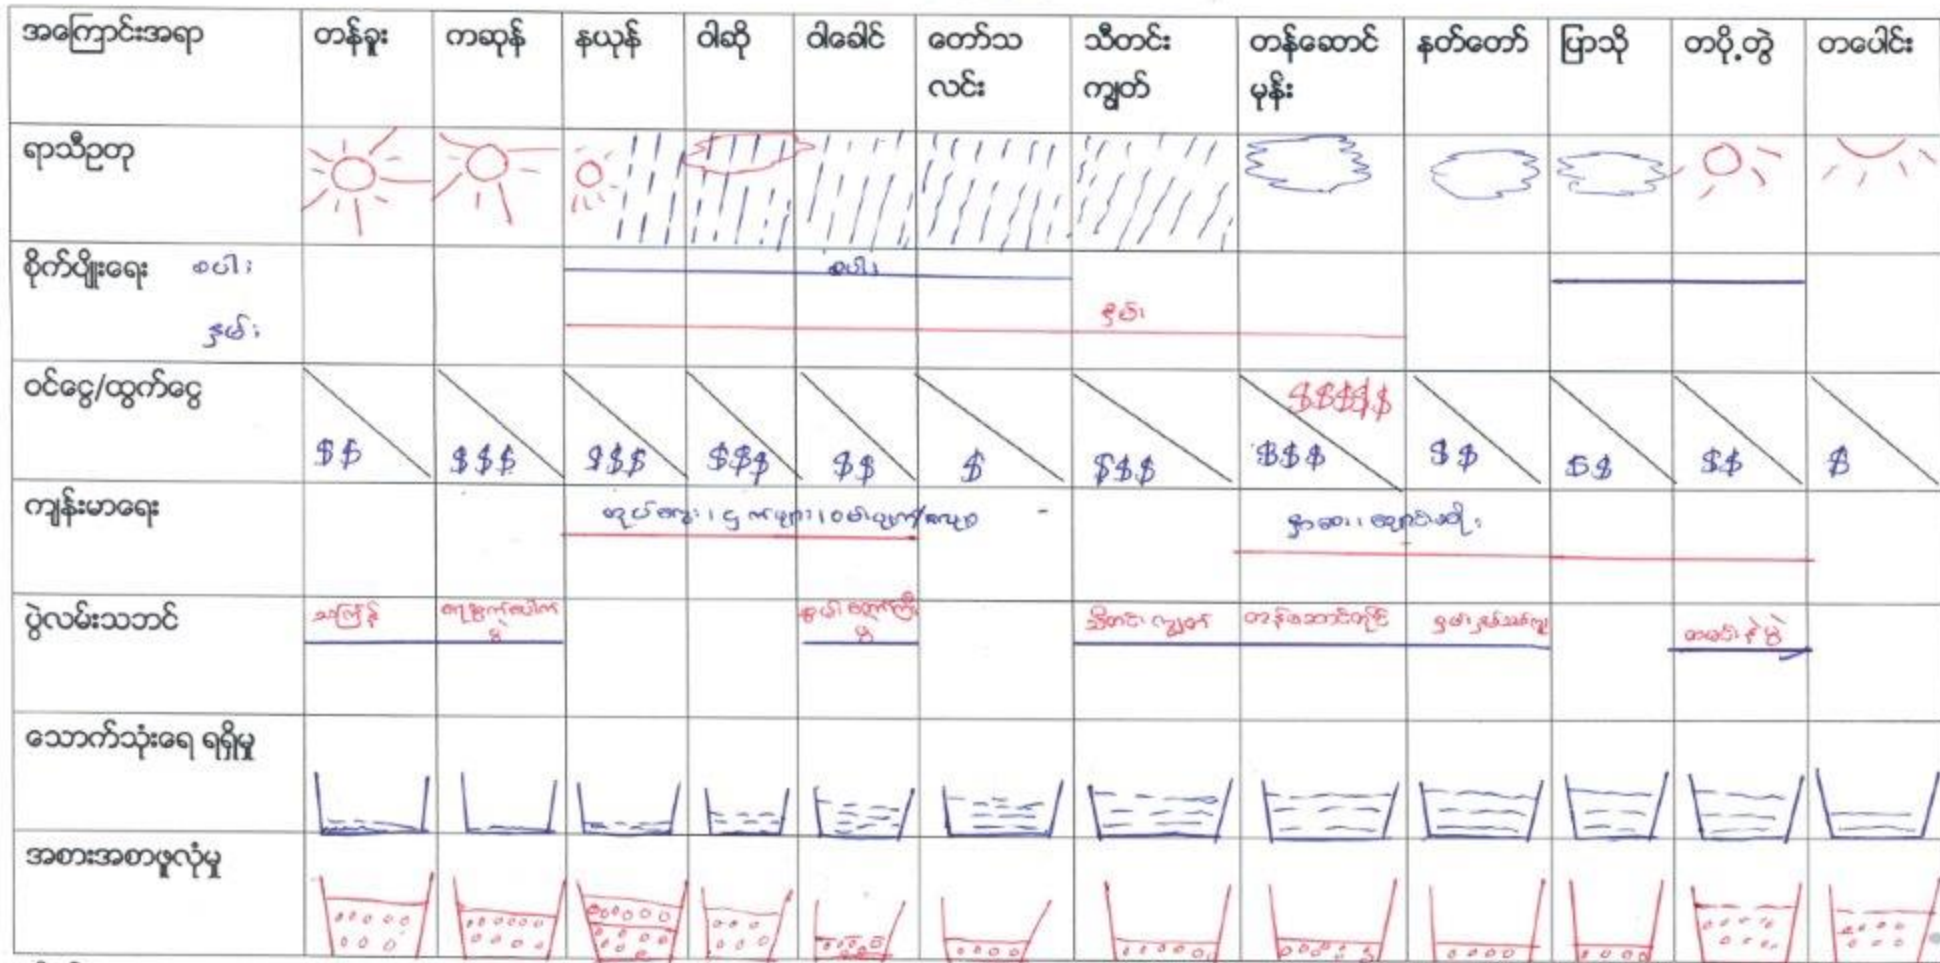 အကြောင်းအရာ တန်ခူး ကဆုန် နယုန် ဝါဆို ဝါခေါင် တော်သလင်း သီတင်းကျွတ် တန်ဆောင်မုန်း နတ်တော် ပြာသို တပို့တွဲ တပေါင်း
ရာသီဥတု
စိုက်ပျိုးရေး စပါး စပါး
နှမ်း နှမ်း
ဝင်ငွေ/ထွက်ငွေ $$$$$
$$ $$$ $$$ $$$ $$ $ $$$ $$$ $$ $$ $$ $
ကျန်းမာရေး တုပ်ကွေး၊ ငှက်ဖျား၊ ဝမ်းပျက်/လျှော နှာစေး၊ ချောင်းဆိုး
ပွဲလမ်းသဘင် သင်္ကြန် သီတင်းကျွတ် တန်ဆောင်တိုင်
သောက်သုံးရေ ရရှိမှု
အစားအစာဖူလုံမှု